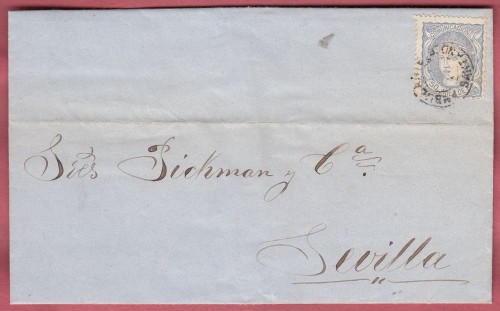 COMUNICACIONES
Sres Pickman y Cª
Sevilla